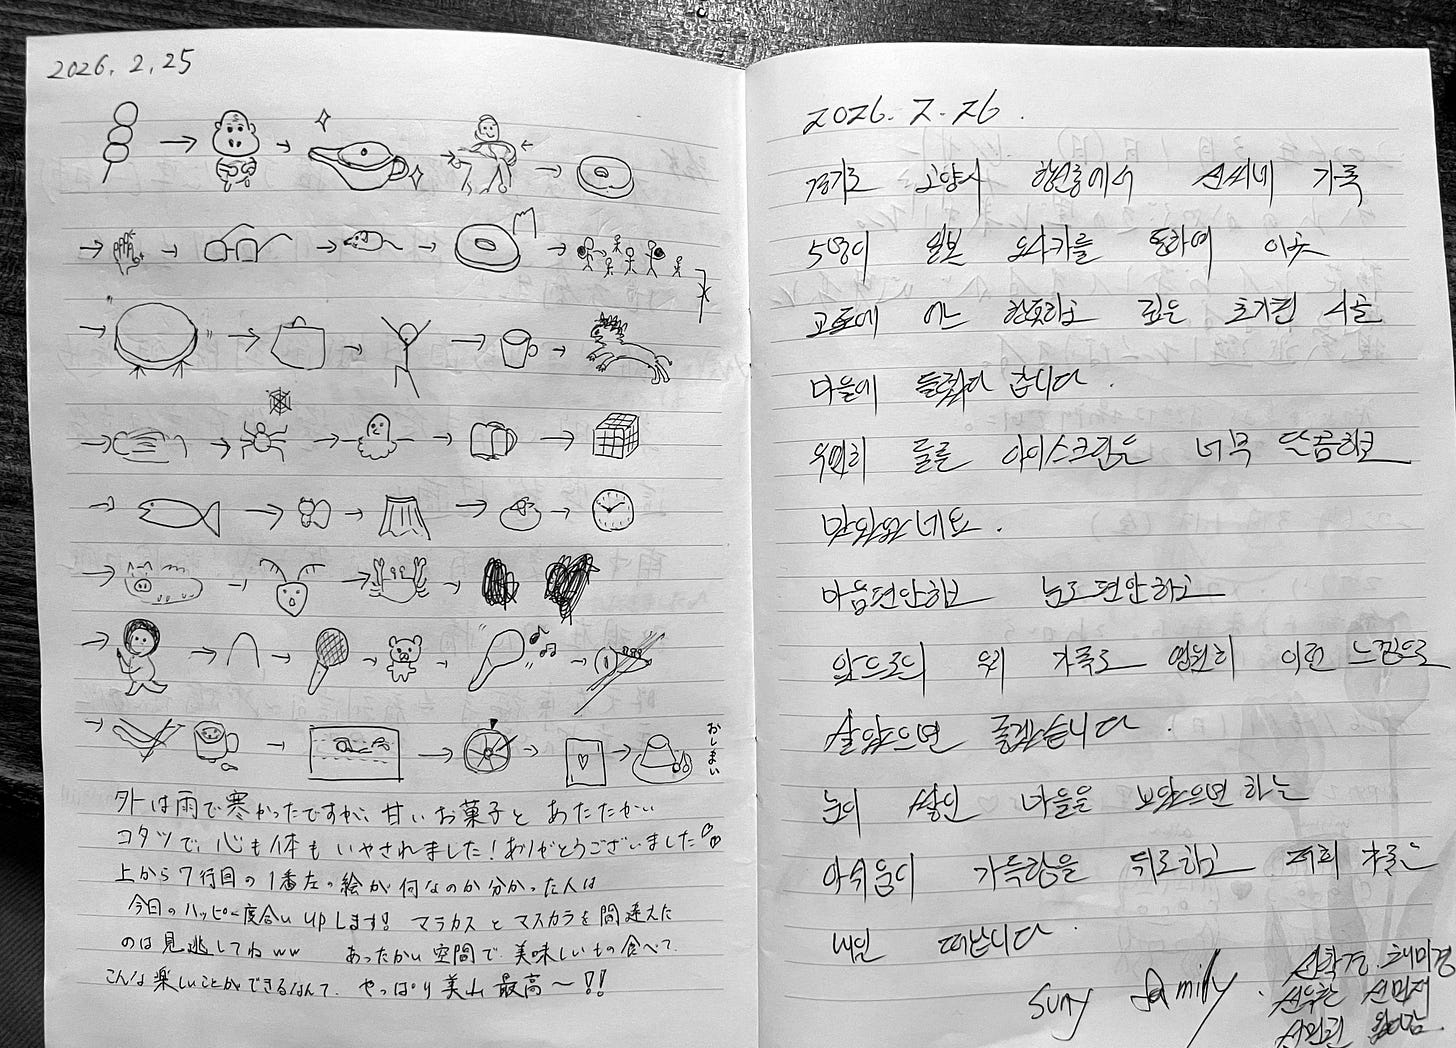 2026. 2. 25
おしまい
外は雨で寒かったですが、甘いお菓子と あたたかい
コタツで、心も体も いやされました！ありがとうございました
上から7行目の1番左の絵が何なのか分かった人は
今日のハッピー度合い upします！ マラカスとマスカラを間違えた
のは見逃してねww あったかい空間で、美味しいもの食べて、
こんな楽しいことができるなんて、やっぱり美山最高〜!!
2026. 2. 26.
경기도 고양시 행신동에서 신씨네 가족
5명이 일본 오사카를 통하여 이곳
교토에 어느 한적하고 깊은 초가집 시골
마을에 들렸다 갑니다.
우연히 들른 아이스크림은 너무 달콤하고
맛있었네요.
마음편안하고 눈도 편안하고
앞으로의 우리 가족도 영원히 이런 느낌으로
살았으면 좋겠습니다.
눈이 쌓인 마을을 보았으면 하는
아쉬움이 가득함을 뒤로하고 저희 가족은
내일 떠납니다.
Suny family.